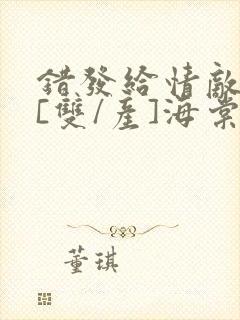 錯發給情敵
[雙/產]海棠
董琪